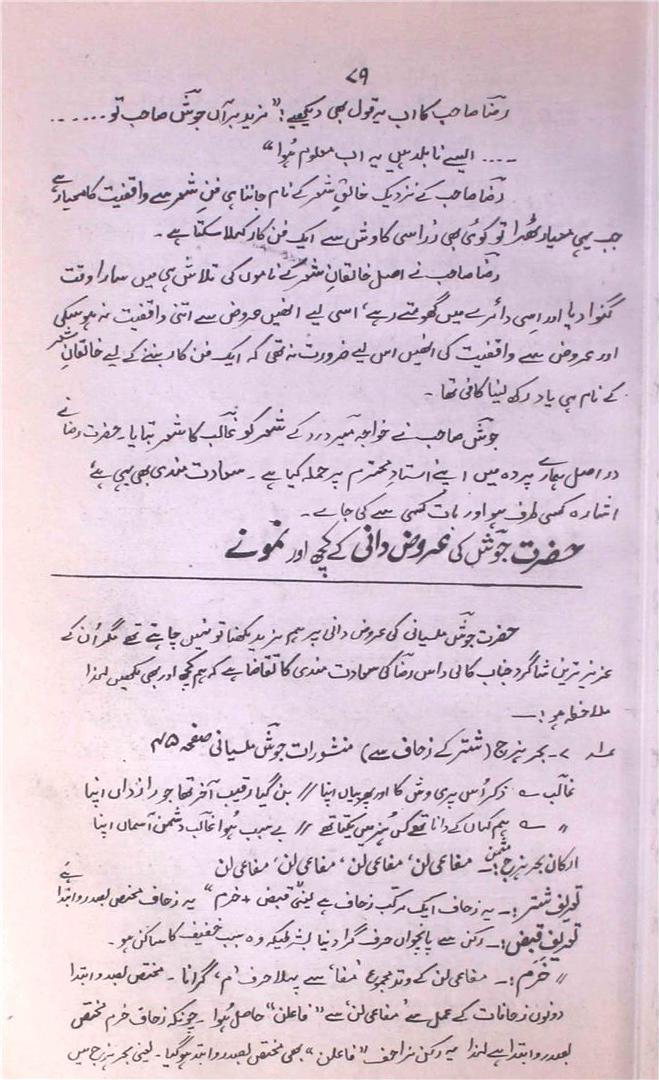 ۷۹
رضا صاحب کا اب یہ قول بھی دیکھیے! "مزید برآں جوش صاحب تو ......
.... ایسے نابلد ہیں یہ اب معلوم ہُوا"
رضا صاحب کے نزدیک خالقِ شعر کے نام جاننا ہی فنِ شعر سے واقفیت کا معیار ہے
جب یہی معیار ٹھہرا تو کوئی بھی ذراسی کاوش سے ایک فن کار کہلا سکتا ہے۔
رضا صاحب نے اصل خالقانِ شعر کے ناموں کی تلاش ہی میں سارا وقت
گنوا دیا اور اسی دائرے میں گھومتے رہے، اسی لیے انھیں عروض سے اتنی واقفیت نہ ہو سکی
اور عروض سے واقفیت کی انھیں اس لیے ضرورت نہ تھی کہ ایک فن کار بننے کے لیے خالقانِ شعر
کے نام ہی یاد رکھ لینا کافی تھا۔
جوش صاحب نے خواجہ میر درد کے شعر کو غالب کا شعر بتایا۔ حضرت رضا نے
در اصل ہمارے پردہ میں اپنے استادِ محترم پر حملہ کیا ہے۔ سعادت مندی بھی یہی ہے،
اشارہ کسی طرف ہو اور بات کسی سے کی جائے۔
حضرت جوش کی عروض دانی کے کچھ اور نمونے
حضرت جوش ملسیانی کی عروض دانی پر ہم مزید لکھنا تو نہیں چاہتے تھے مگر اُن کے
عزیز ترین شاگرد جناب کالی داس رضا کی سعادت مندی کا تقاضا ہے کہ ہم کچھ اور بھی لکھیں لہذا
ملاحظہ ہو! —
۷۔ بحر ہزج (شتر کے زحاف سے) منشورات جوش ملسیانی صفحہ ۴۵
غالب ؎ ذکر اُس پری وش کا اور پھر بیاں اپنا // بن گیا رقیب آخر تھا جو رازداں اپنا
〃 ؎ ہم کہاں کے دانا تھے کس ہنر میں یکتا تھے // بے سبب ہُوا غالب دشمن آسماں اپنا
ارکان بحر ہزج مثمن:۔ مفاعی لن، مفاعی لن، مفاعی لن، مفاعی لن
تعریف شتر:۔ یہ زحاف ایک مرکب زحاف ہے یعنی "قبض + خرم" یہ زحاف مختص بصدر و ابتدا ہے
تعریف قبض:۔ رکن سے پانچواں حرف گرا دینا بشرطیکہ وہ سبب خفیف کا ساکن ہو۔
〃 خرم:۔ مفاعی لن کے وتد مجموع 'مفا' سے پہلا حرف 'م' گرانا۔ مختص بصدر و ابتدا
دونوں زحافات کے عمل سے 'مفاعی لن' سے "فاعلن" حاصل ہُوا۔ چونکہ زحاف خرم مختص
بصدر و ابتدا ہے لہذا یہ رکن مزاحف "فاعلن" بھی مختص بصدر و ابتدا ہو گیا۔ یعنی بحر ہزج میں